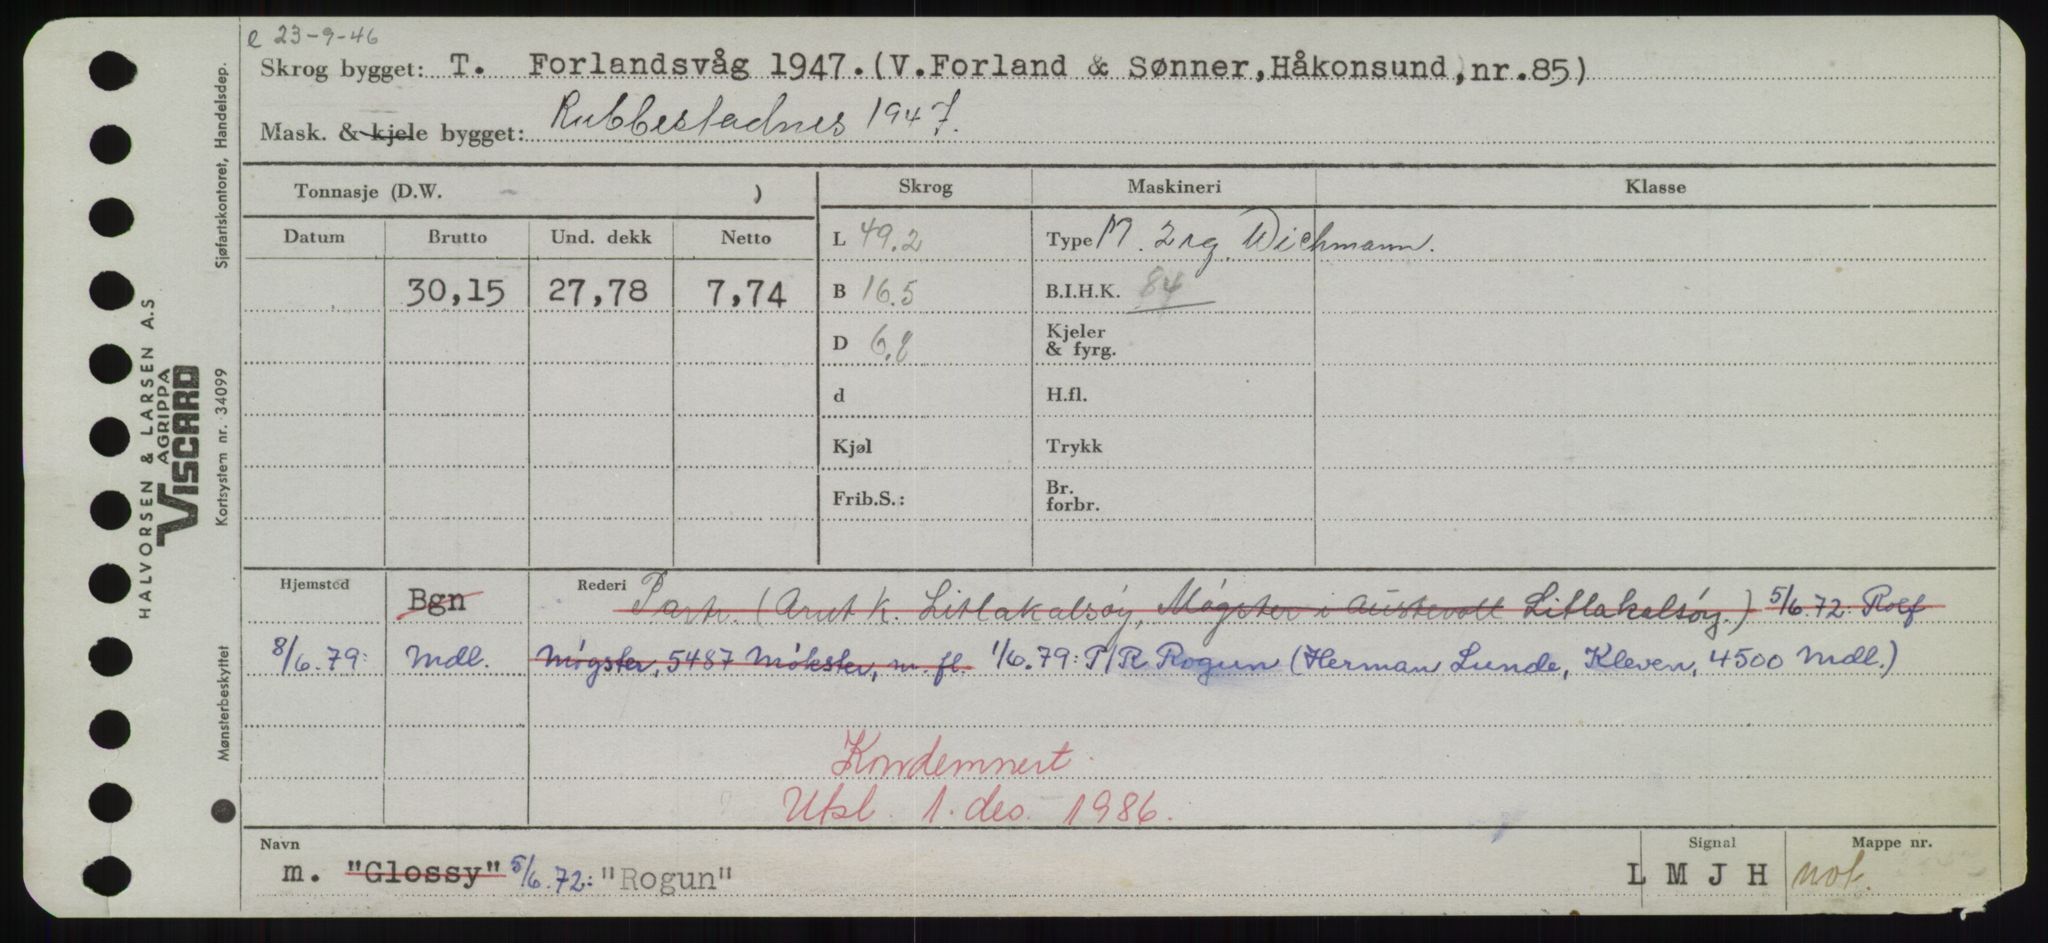 e 23-9-46
Skrog bygget: T. Forlandsvåg 1947.(V.Forland & Sønner,Håkonsund,nr.85)
Mask. & kjele bygget: Rubbestadnes 1947.
Tonnasje (D.W. - )
Skrog
Maskineri
Klasse
Datum Brutto Und. dekk Netto
L 49.2
Type M. 2 sg. Wichmann.
30,15 27,78 7,74
B 16.5
B.I.H.K. 84
D 6.8
Kjeler
& fyrg.
d
H.fl.
Kjøl
Trykk
Frib.S.:
Br.
forbr.
Hjemsted Bgn
Rederi Partr. (Arnt K. Litlakalsøy, Møgster i Austevoll Litlakalsøy.) 5/6.72: Rolf
8/6.79: Mdl. Møgster, 5487 Møkster, m. fl. 1/6.79: P/R Rogun (Herman Lunde, Kleven, 4500 Mdl.)
Kondemnert.
Utsl. 1. des. 1986.
Navn
m. "Glossy" 5/6.72: "Rogun"
Signal
L M J H
Mappe nr.
not.
HALVORSEN & LARSEN A.S
AGRIPPA
VISCARD
Mønsterbeskyttet Kortsystem nr. 34099 Sjøfartskontoret, Handelsdep.